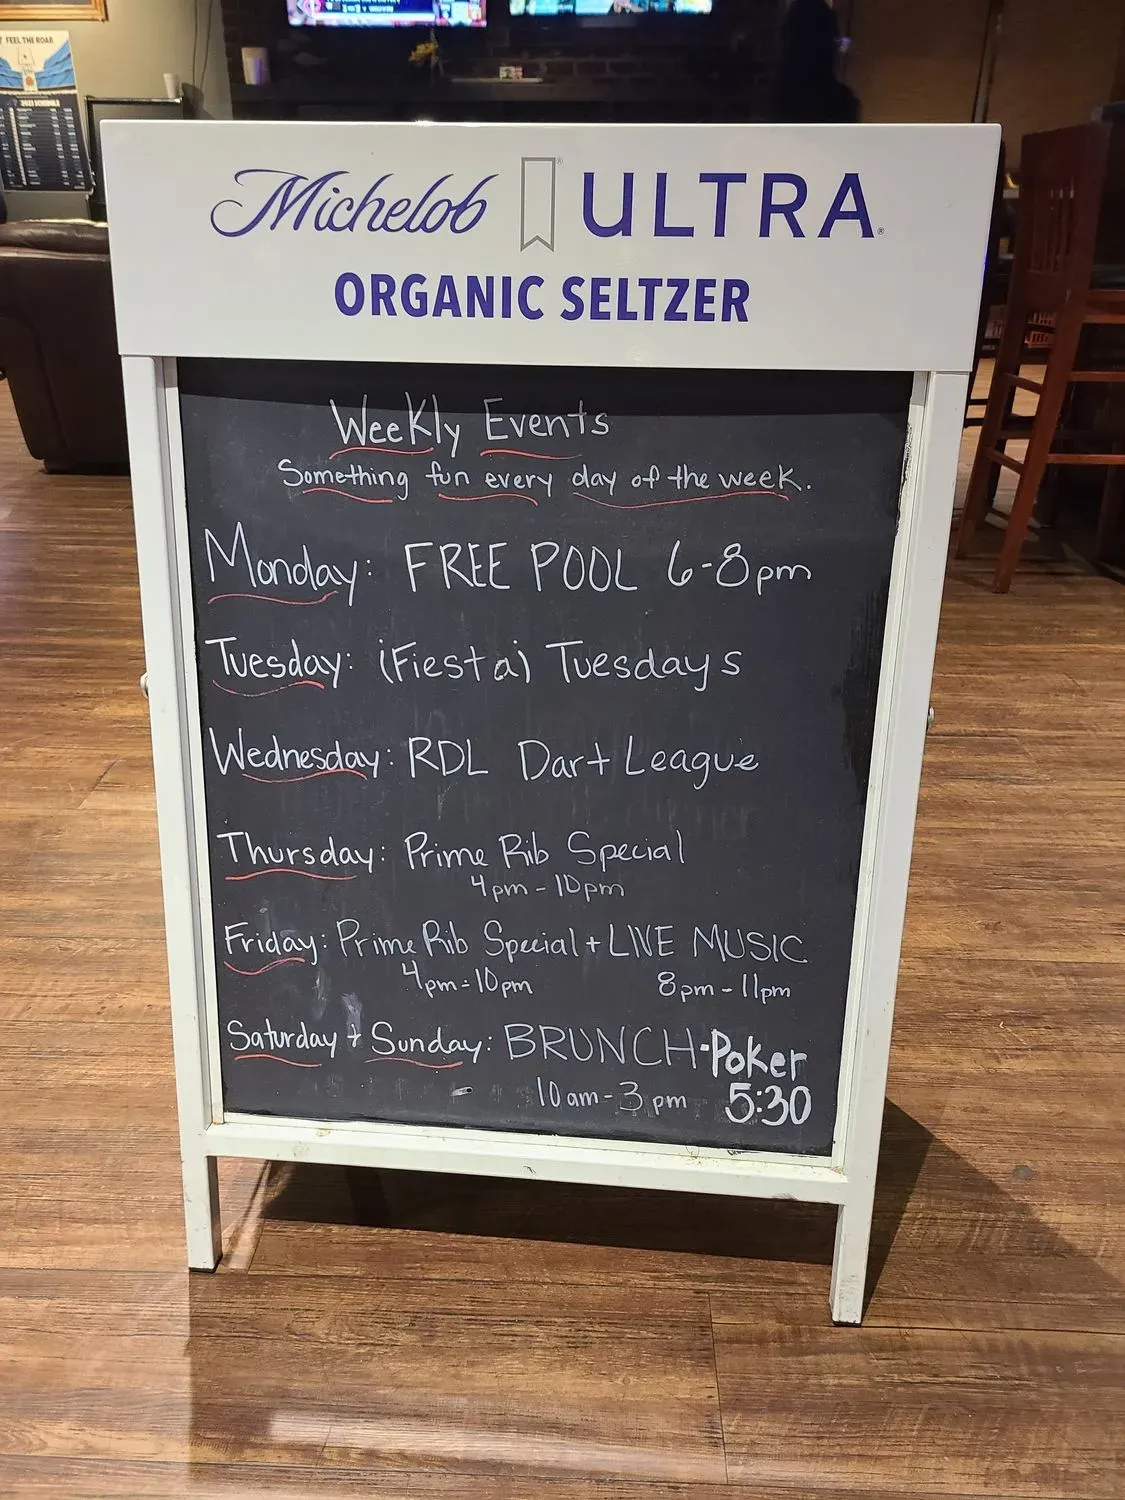 FEEL THE ROAR
2023 SCHEDULE
Michelob ULTRA
ORGANIC SELTZER
Weekly Events
Something fun every day of the week.
Monday: FREE POOL 6-8pm
Tuesday: (Fiesta) Tuesdays
Wednesday: RDL Dart League
Thursday: Prime Rib Special
4pm-10pm
Friday: Prime Rib Special + LIVE MUSIC
4pm-10pm 8pm-11pm
Saturday + Sunday: BRUNCH-Poker
10am-3pm 5:30